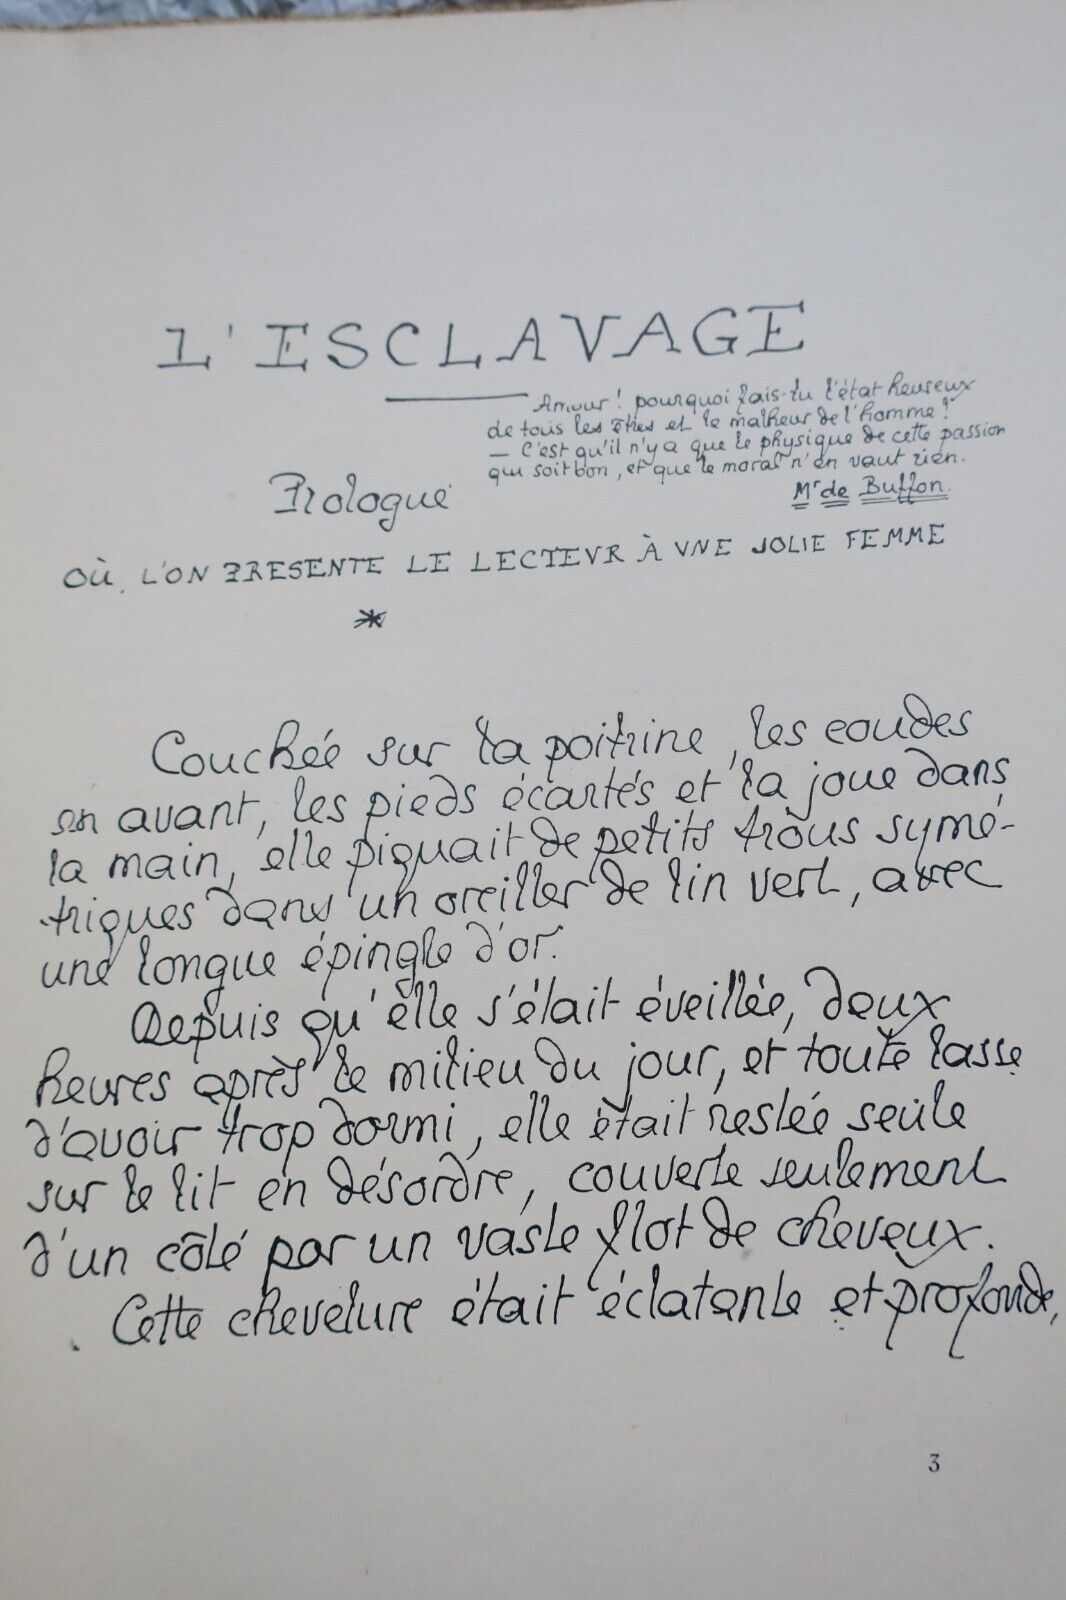 L'ESCLAVAGE
Amour! pourquoi fais-tu l'état heureux
de tous les êtres et le malheur de l'homme!
— C'est qu'il n'y a que le physique de cette passion
qui soit bon, et que le moral n'en vaut rien.
Mr de Buffon.
Prologue
OÙ L'ON PRESENTE LE LECTEVR À VNE JOLIE FEMME
*
Couchée sur la poitrine, les coudes
en avant, les pieds écartés et la joue dans
la main, elle piquait de petits trous symé-
triques dans un oreiller de lin vert, avec
une longue épingle d'or.
Depuis qu'elle s'était éveillée, deux
heures après le milieu du jour, et toute lasse
d'avoir trop dormi, elle était restée seule
sur le lit en désordre, couverte seulement
d'un côté par un vaste flot de cheveux.
Cette chevelure était éclatante et profonde,
3